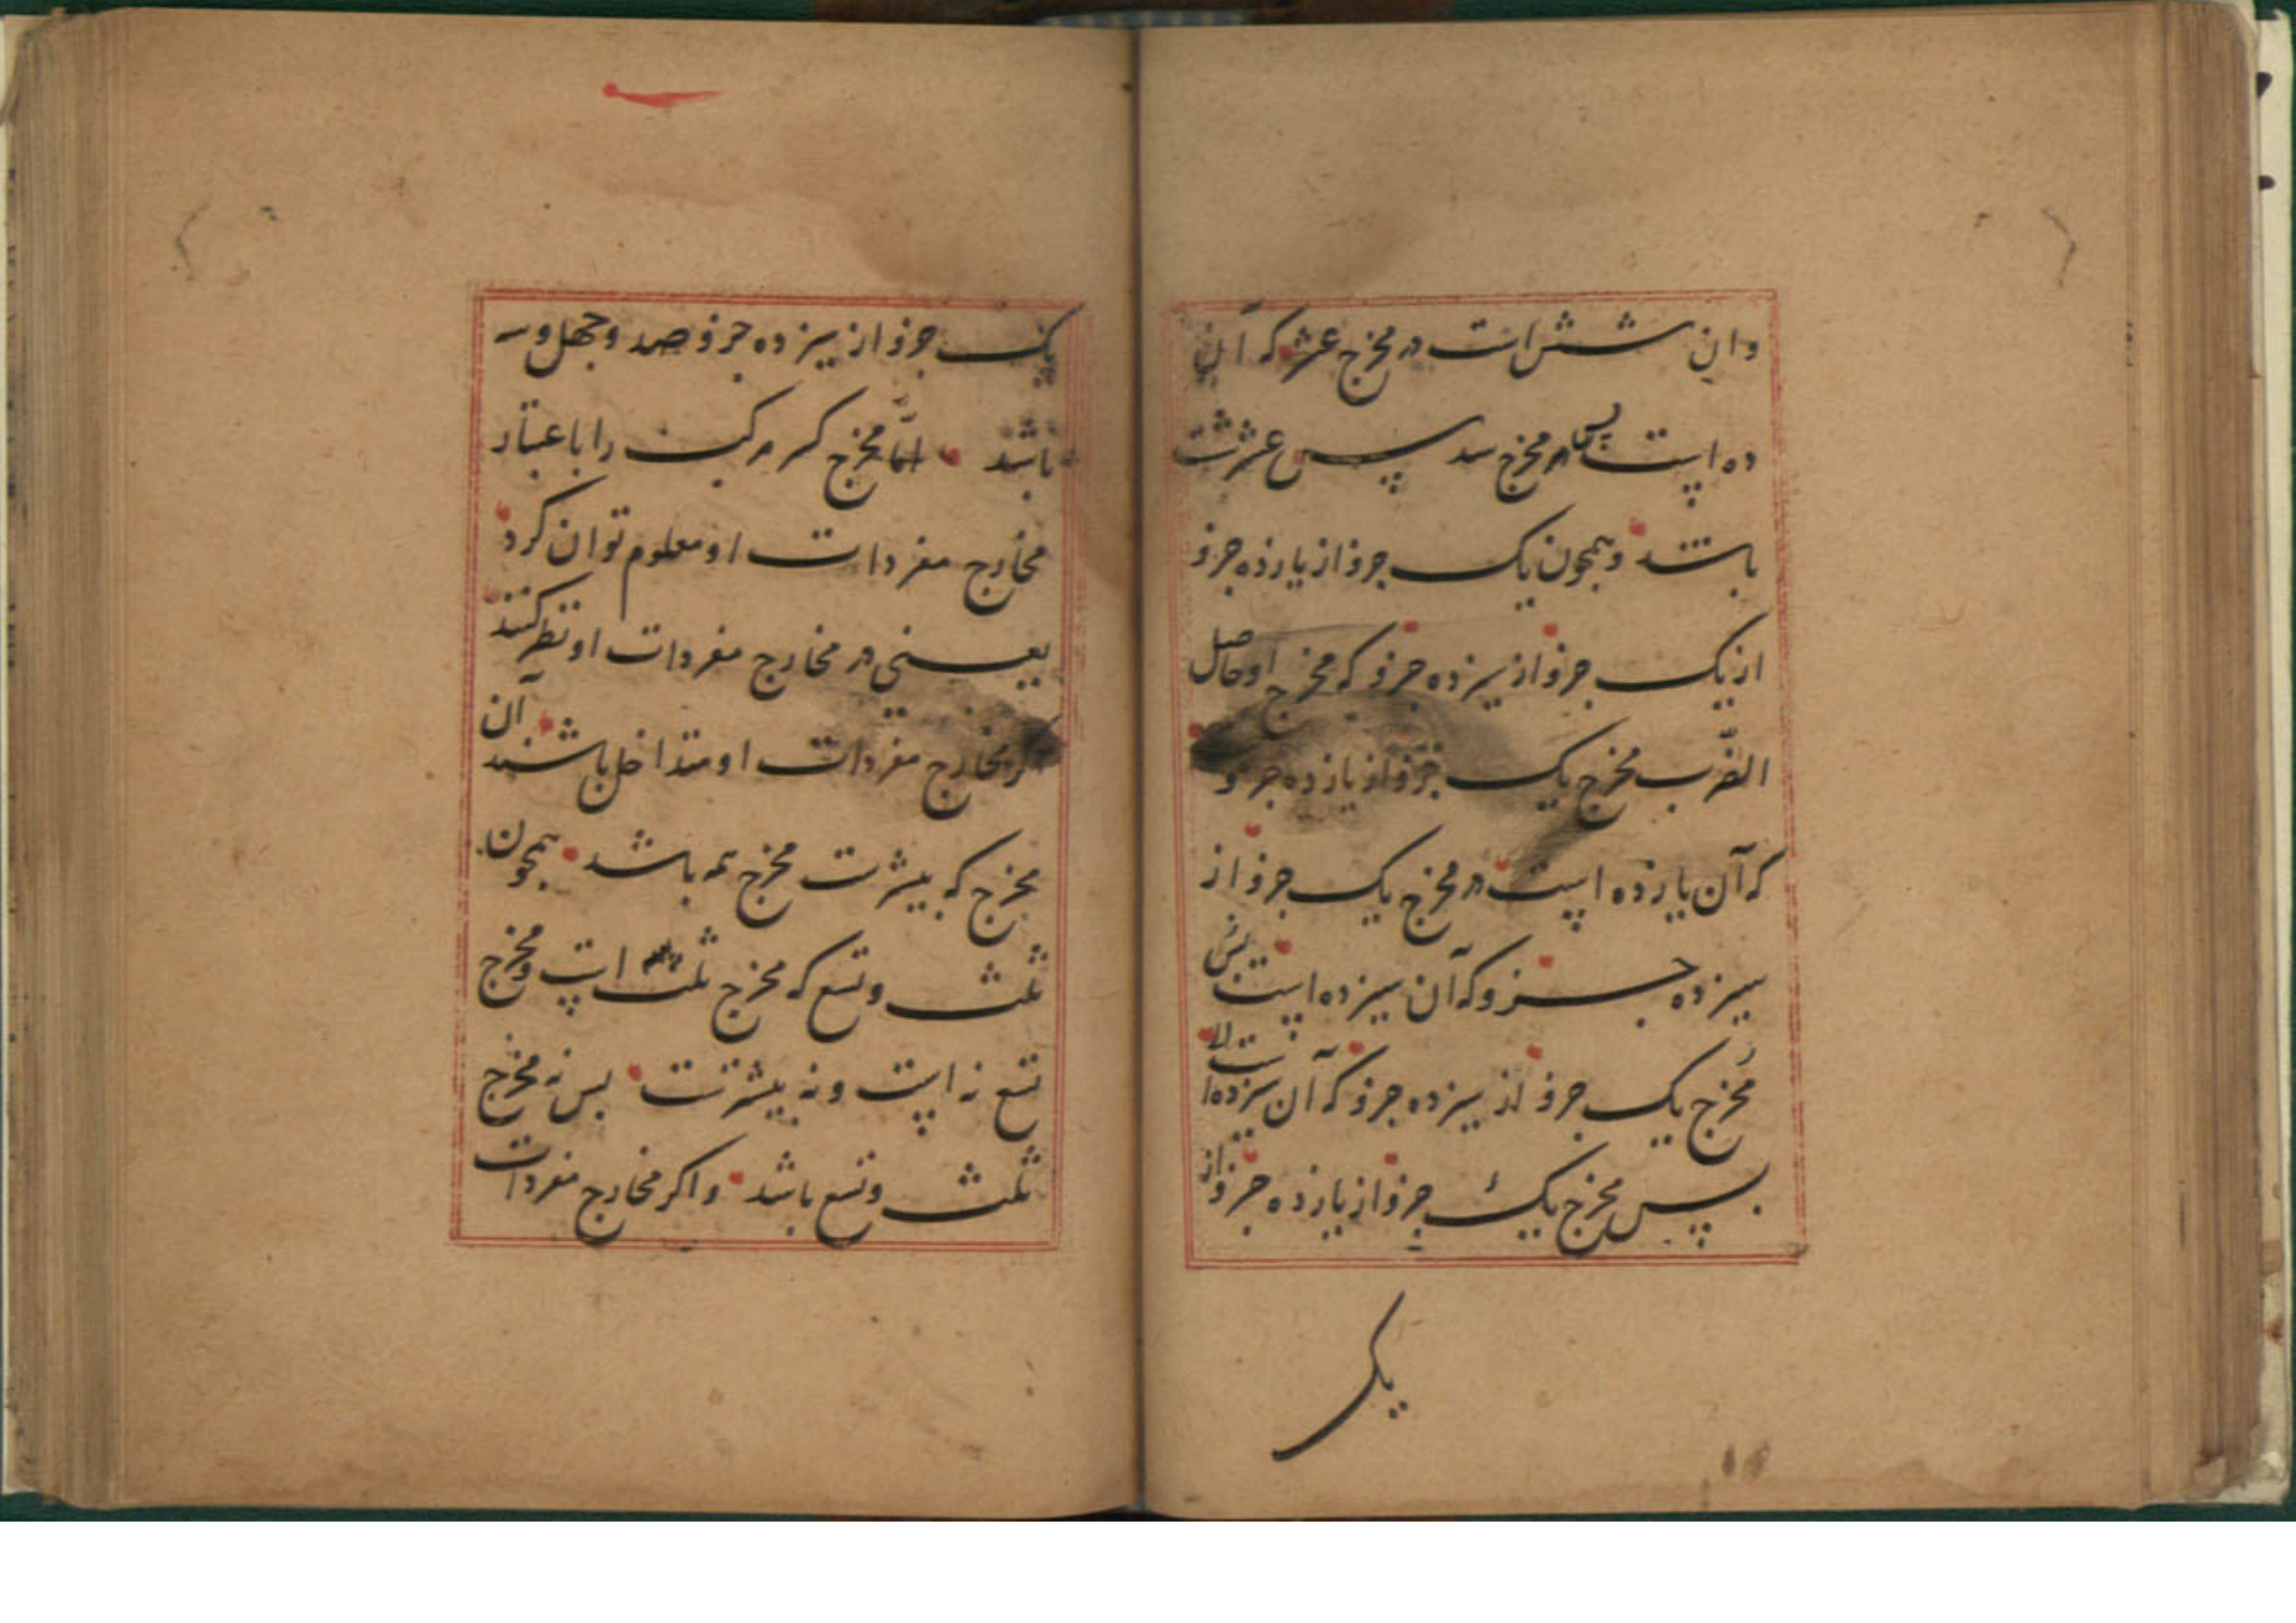 وان شش است در مخرج عشر که آن
ده است پس مخرج سد پس عشر شت
باشد و همچون یک جزو از یازده جزو
از یک جزو از سیزده جزو که مخرج او حاصل
الضّرب مخرج یک جزو از یازده جزو
که آن یازده است در مخرج یک جزو از
سیزده جزو که آن سیزده است پس
مخرج یک جزو از سیزده جزو که آن سیزده است
پس مخرج یک جزو از یازده جزو از
یک
یک جزو از سیزده جزو صد و چهل و سه
باشد امّا مخرج کسر مرکب را باعتبار
مخارج مفردات او معلوم توان کرد
یعنی در مخارج مفردات او نظر کنند
مخارج مفردات او متداخل باشند آن
مخرج که بیشتر ست مخرج همه باشد همچون
ثلث و تسع که مخرج ثلث است و مخرج
تسع نه است و نه بیشترست پس نه مخرج
ثلث و تسع باشد و اکر مخارج مفردات